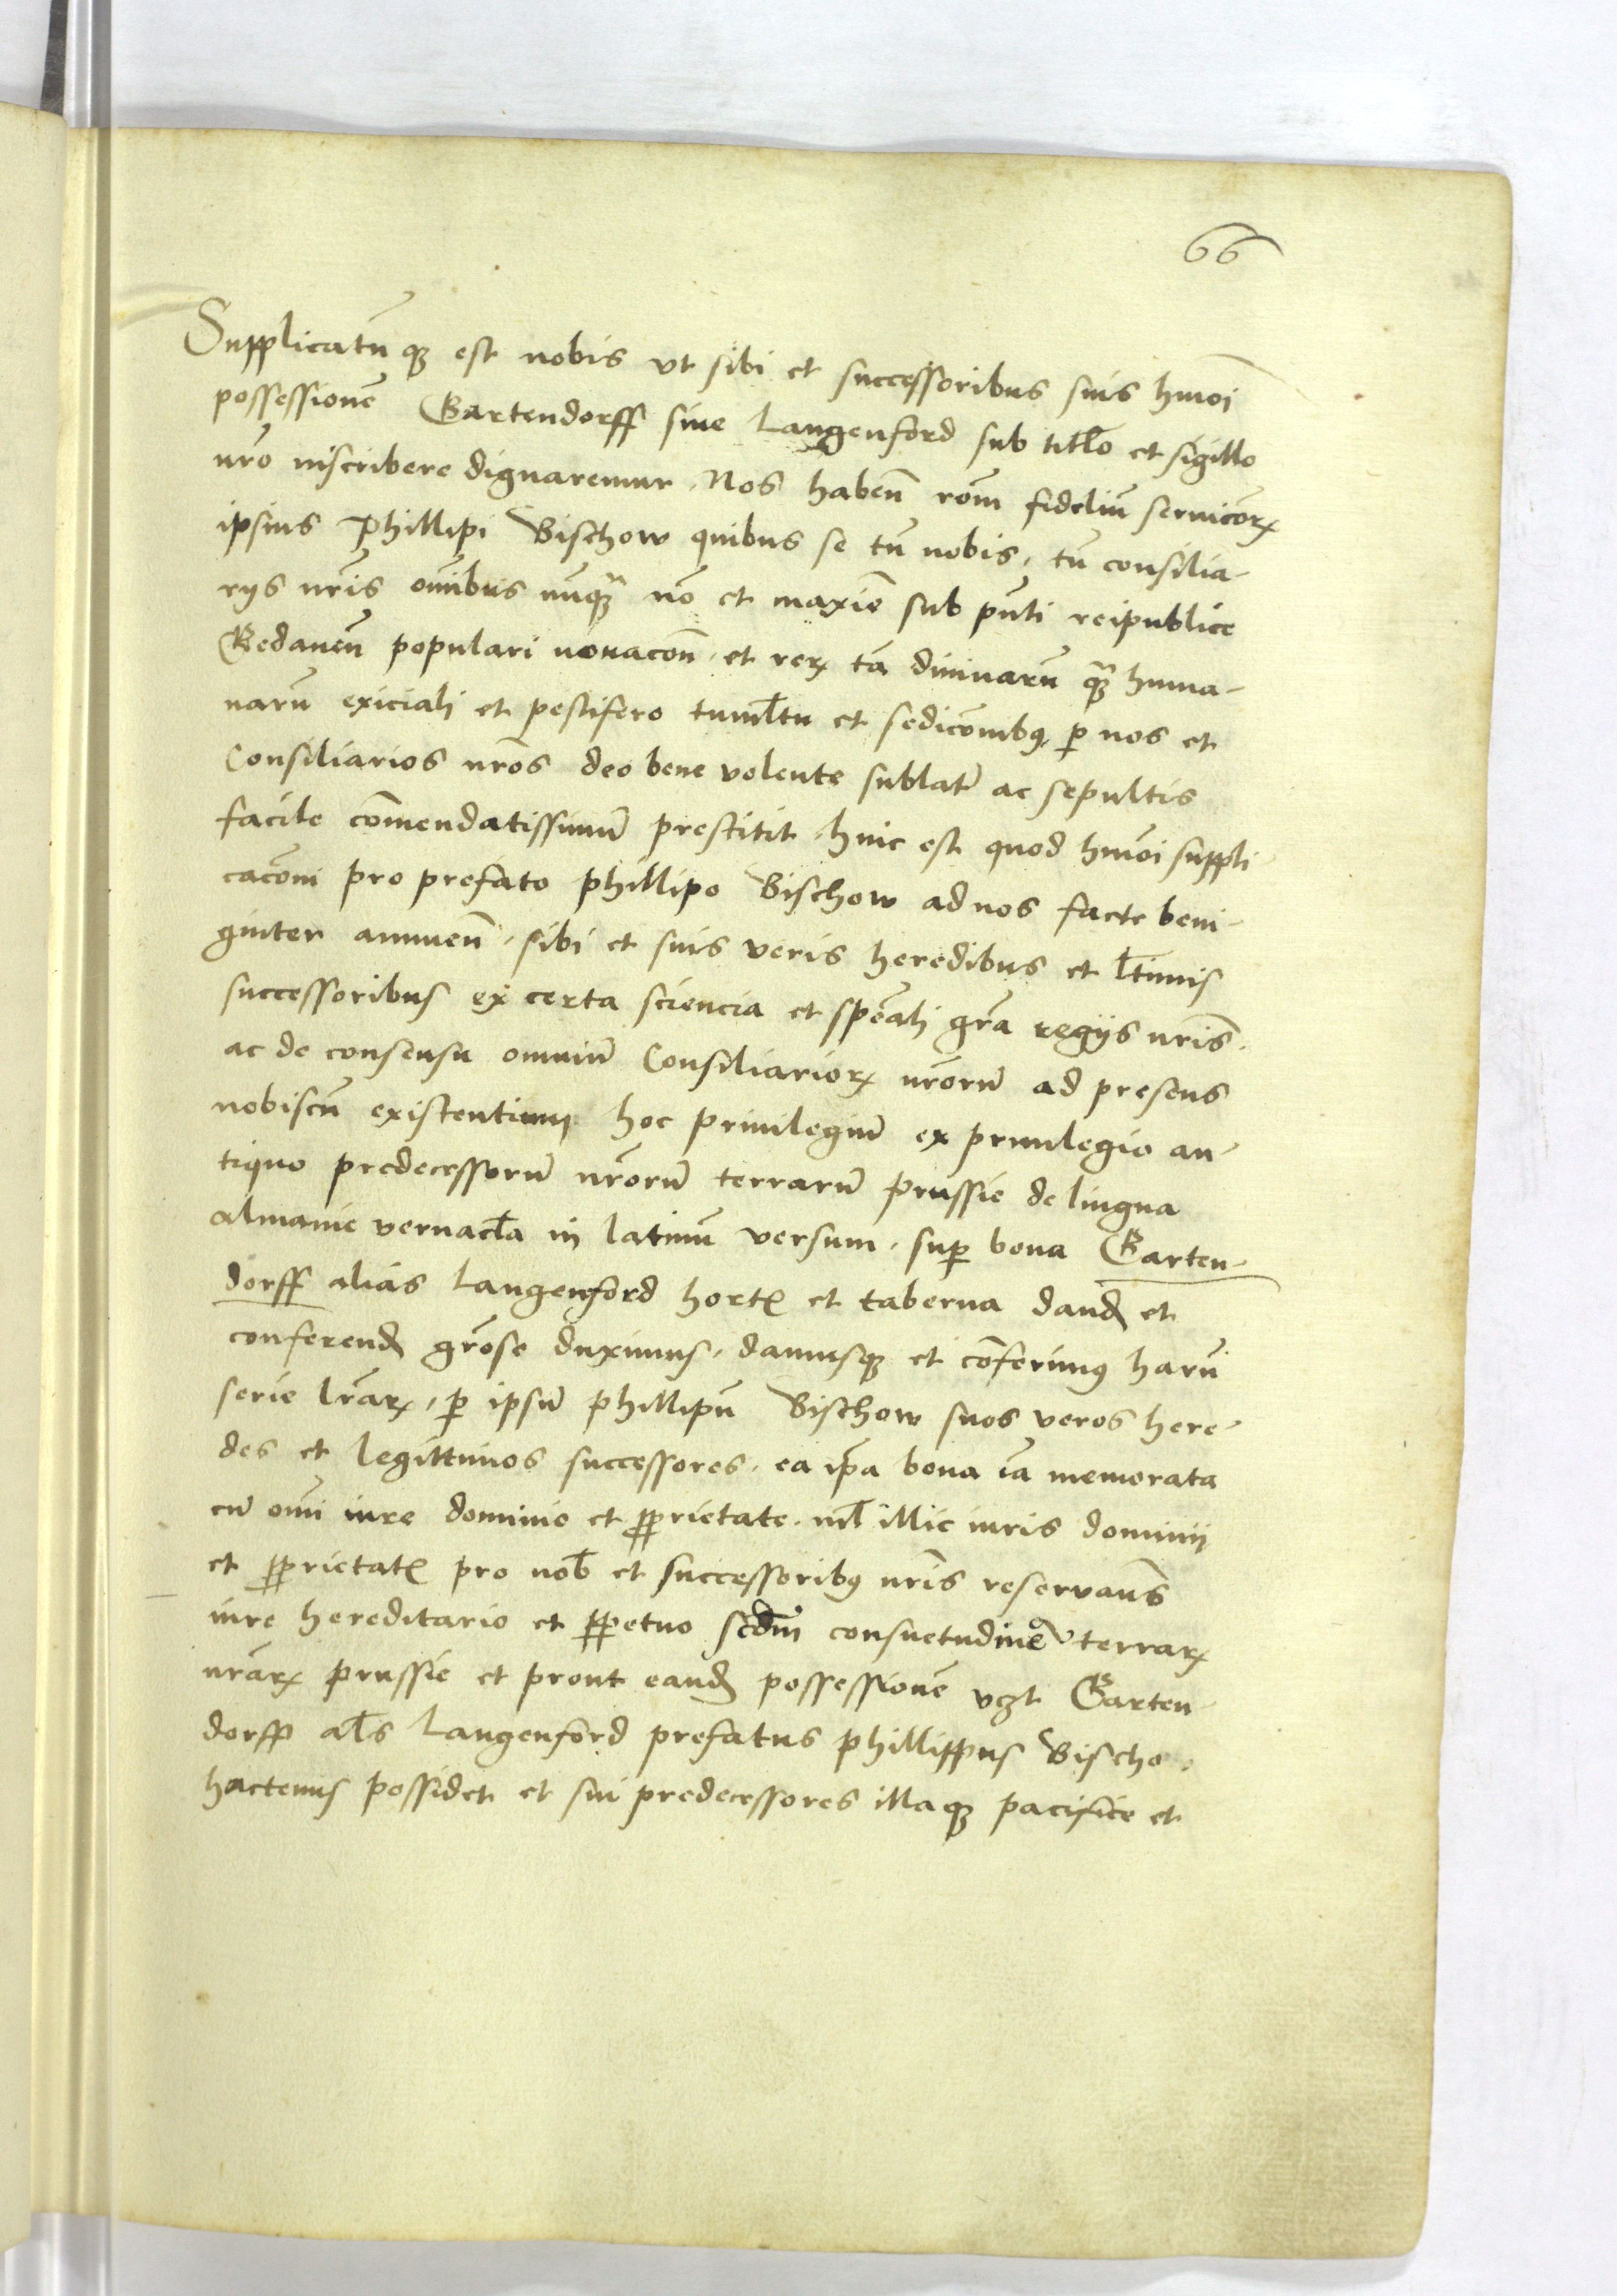 66
Supplicatū qȝ est nobis vt sibi et successoribus suis hmōi
possessionē Gartendorff siue Langenford sub titło et sigillo
nr̄o inscribere dignaremur. Nos habeñ rōm fideliū seruicōrꝝ
ipsius Phillipi Bischow quibus se tū nobis, tū consilia-
rÿs nr̄is om̄ibus nunqȝ nō et maxīe sub pn̄ti reipublice
Gedaneñ populari nouacōn, et rerꝝ tā diuinarū qȝ huma-
narū exiciali et pestifero tumłtu et sedicōnibꝯ, ꝑ nos et
Consiliarios nr̄os deo bene volente sublat̄ ac sepultis
facile cōmendatissimū prestitit, hinc est quod hmōi suppli
cacōni pro prefato phillipo Bischow ad nos facte beni-
gniter annueñ, sibi et suis veris heredibus et łtimis
successoribus ex certa sciencia et spēali gr̄a regijs nr̄is.
ac de consensu omniū Consiliariorꝝ nr̄orū ad presens
nobiscū existentium hoc priuilegiū ex priuilegio an-
tiquo predecessorū nr̄orū terrarū prussie de lingua
almanie vernacła in latinū versum, suꝑ bona Garten-
dorff alias Langenford hortꝭ et taberna dand et
conferend gr̄ose duximus, damusqȝ et cōferimꝯ harū
serie lr̄arꝝ, ꝑ ipsū phillipū Bischow suos veros here-
des et legittimos successores, ea ip̄a bona iā memorata
cū om̄i iure dominio et ꝓprietate, nił illic iuris dominii
et ꝓprietatꝭ pro nob̄ et successoribꝯ nr̄is reseruan̄s
iure hereditario et ꝑpetuo scd̄m consuetudinē terrarꝝ
nr̄arꝝ prussie et prout eand possessionē vꝫt Garten-
dorff ałs Langenford prefatus phillippus Bischo
hactenus possidet et sui predecessores illaqȝ pacifice et